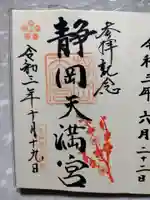 参拝記念
静岡天満宮
令和三年十月十九日
令和三年六月二十二日